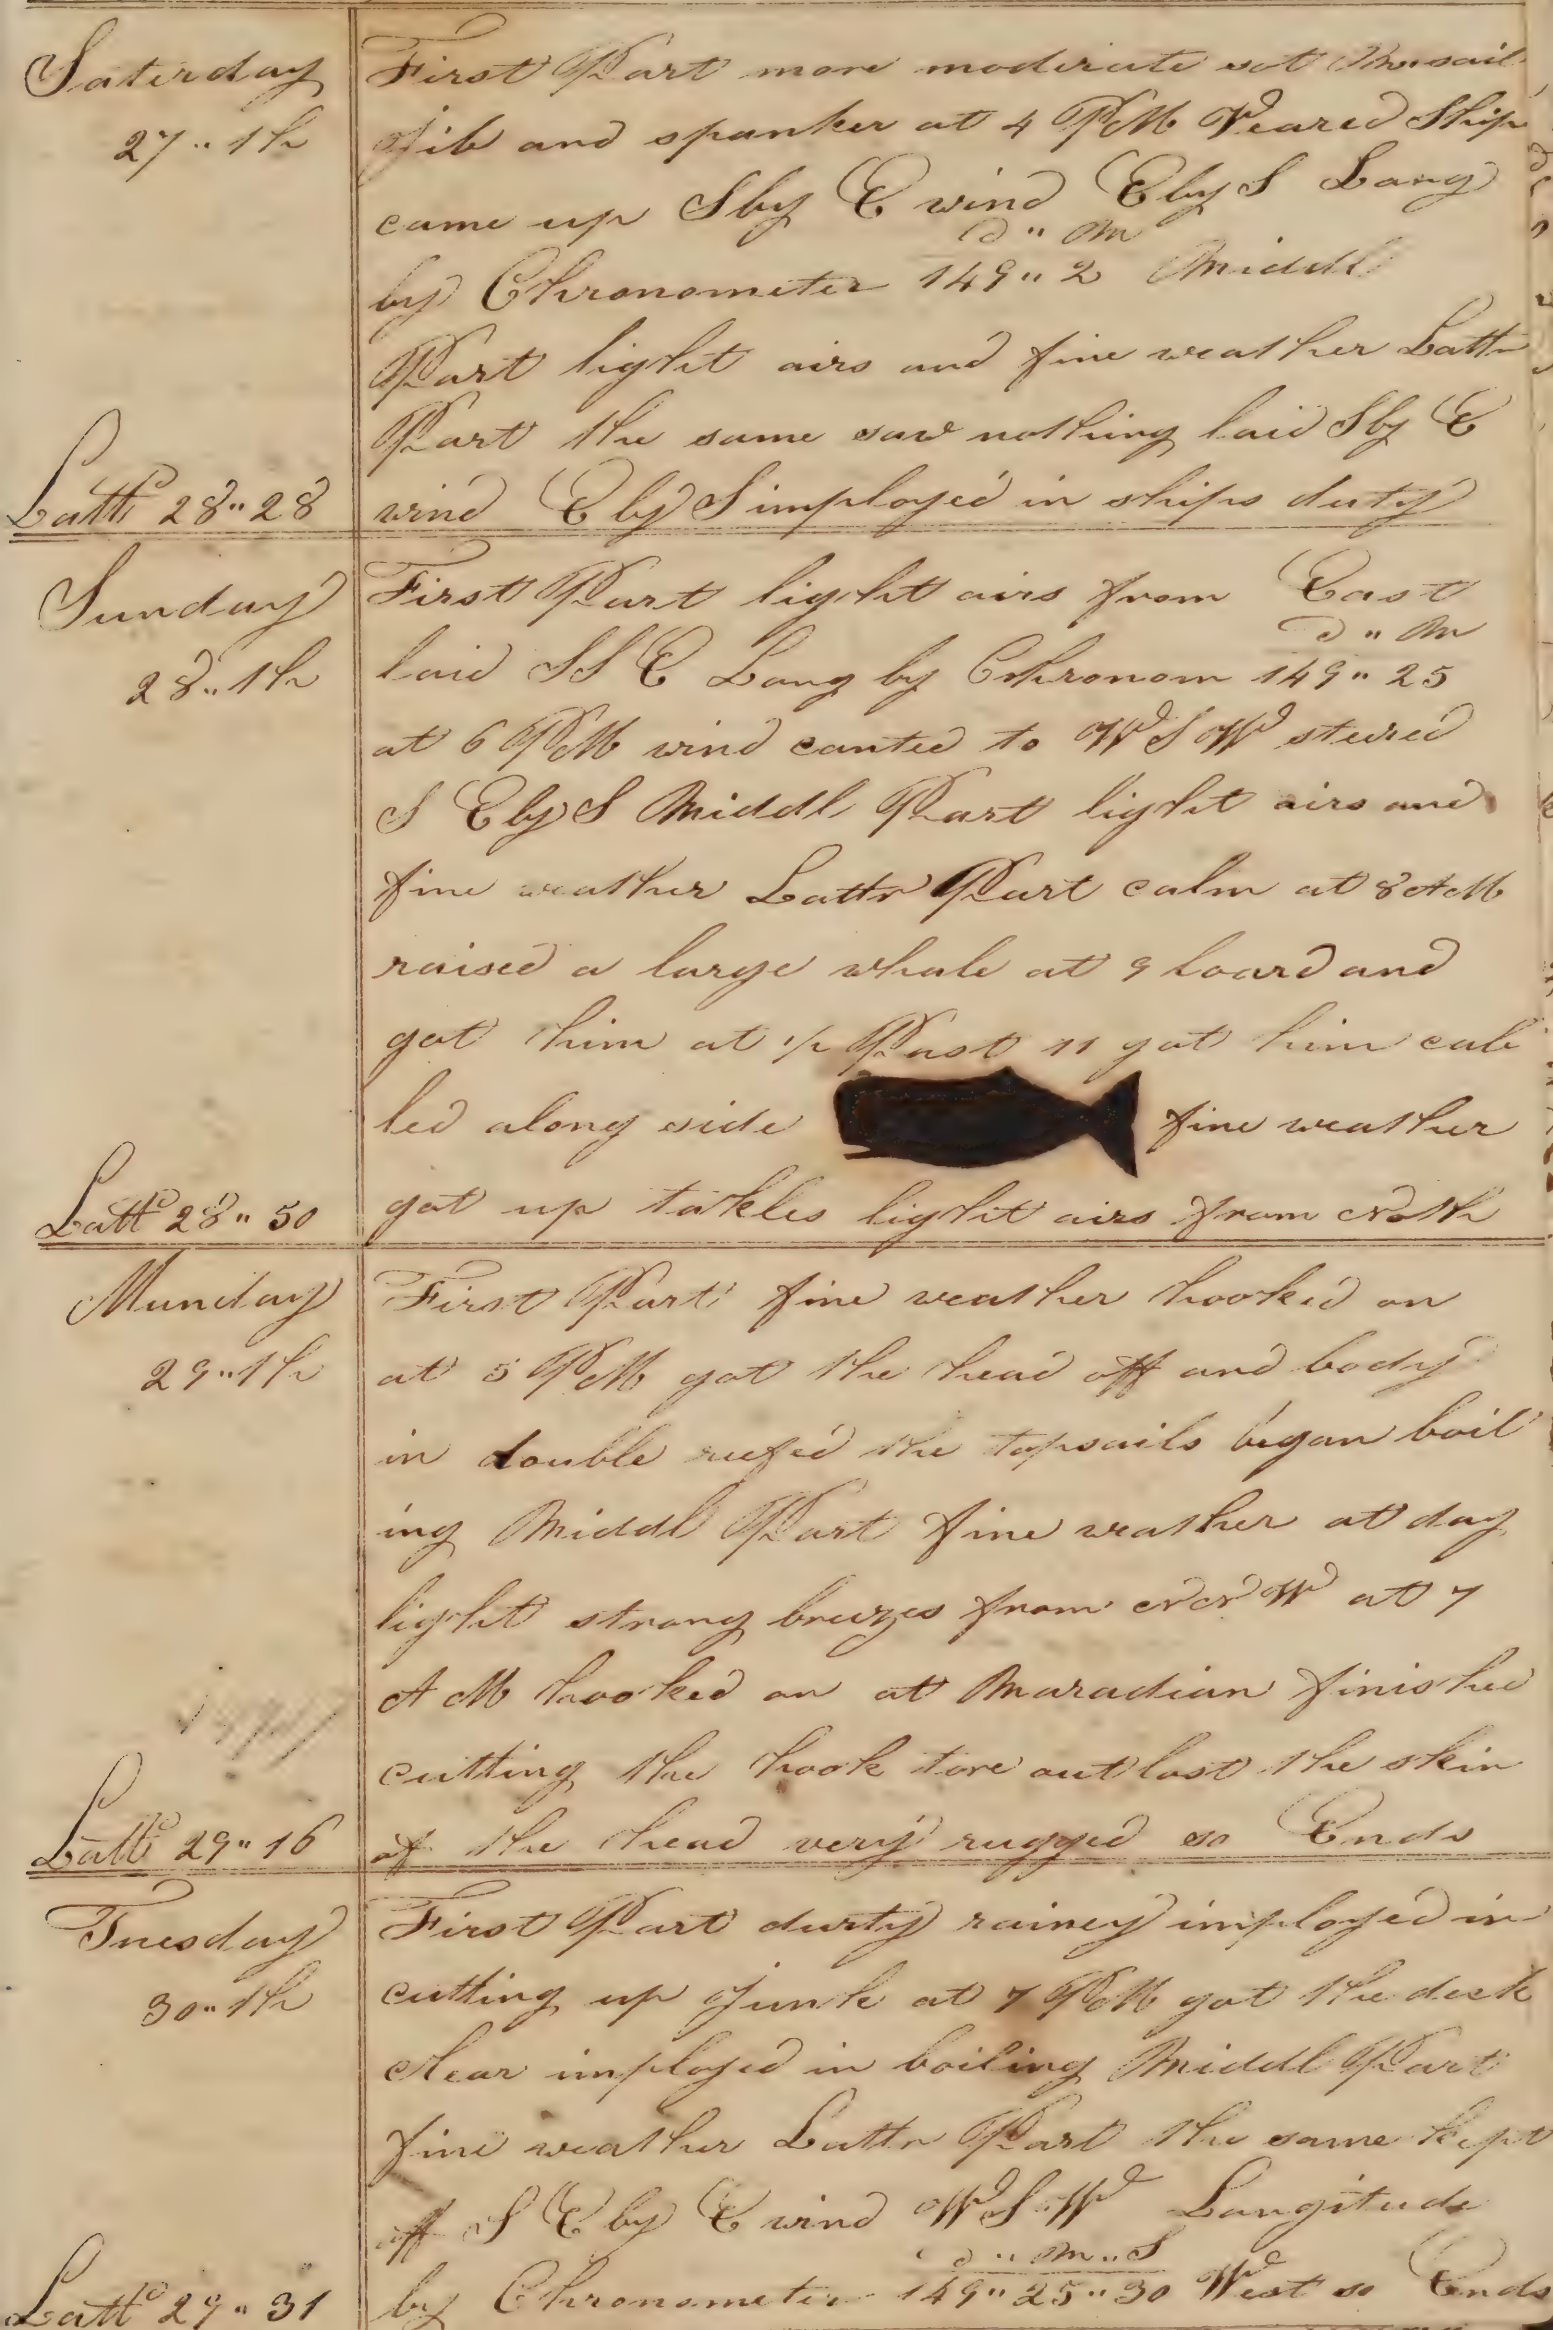 Saterday
27"th
Latt 28"28
First Part more moderate sot Minsail
Jib and spanker at 4 PM Veared Ship
came up S by E wind E by S Long
D " M
by Chronometer 149"2 Middl
Part light airs and fine weather Lattr
Part the same saw nothing laid S by E
wind E by S imployed in ships duty
Sunday
28"th
Latt 28"50
First Part light airs from East
D " M
laid SSE Long by Chronom 149"25
at 6 PM wind canted to WSW stured
S E by S Middl Part light airs and
fine weather Lattr Part calm at 8 AM
raised a large whale at 9 loard and
got him at 1/2 Past 11 got him cab
led along side fine weather
got up takles light airs from North
Munday
29"th
Latt 29"16
First Part fine weather hooked on
at 5 PM got the head off and body
in double reefed the topsails began boil
ing Middl Part fine weather at day
light strong breezes from NNW at 7
AM hooked on at Maradian finished
cutting the hook tore out lost the skin
of the head very rugged so Ends
Tuesday
30"th
Latt 29"31
First Part durty rainey imployed in
cutting up Junk at 7 PM got the deck
clear imployed in boiling Middl Part
fine weather Lattr Part the same kept
off S E by E wind WSW Longitude
D " M " S
by Chronometer 149"25"30 West so Ends